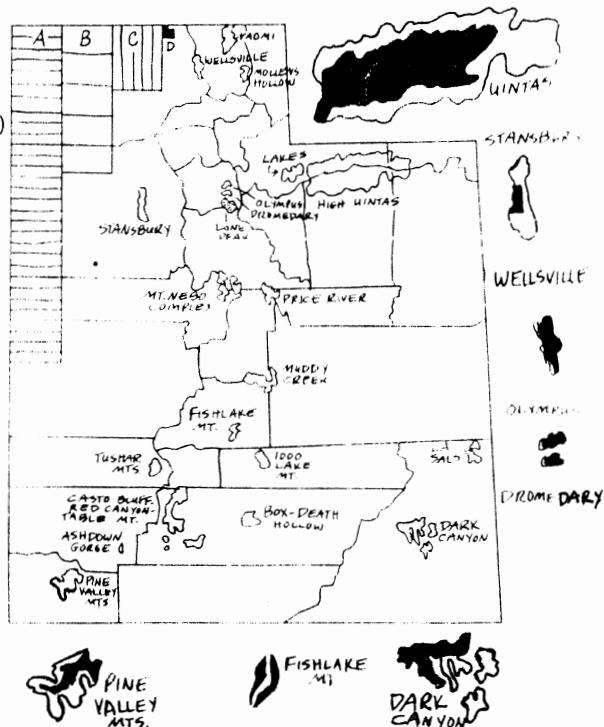 A B C D
NAOMI
WELLSVILLE
MOLLENS
HOLLOW
UINTAS
LAKES
STANSBURY
OLYMPUS
HIGH UINTAS
DROMEDARY
LONE
PEAK
STANSBURY
WELLSVILLE
MT. NEBO
COMPLEX
PRICE RIVER
MUDDY
CREEK
OLYMPUS
FISHLAKE
MT.
TUSHAR
MTS
1000
LAKE
MT.
SALS
DROMEDARY
CASTO BLUFF
RED CANYON-
TABLE MT.
BOX-DEATH
HOLLOW
DARK
CANYON
ASHDOWN
GORGE
PINE
VALLEY
MTS
PINE
VALLEY
MTS.
FISHLAKE
MT
DARK
CANYON